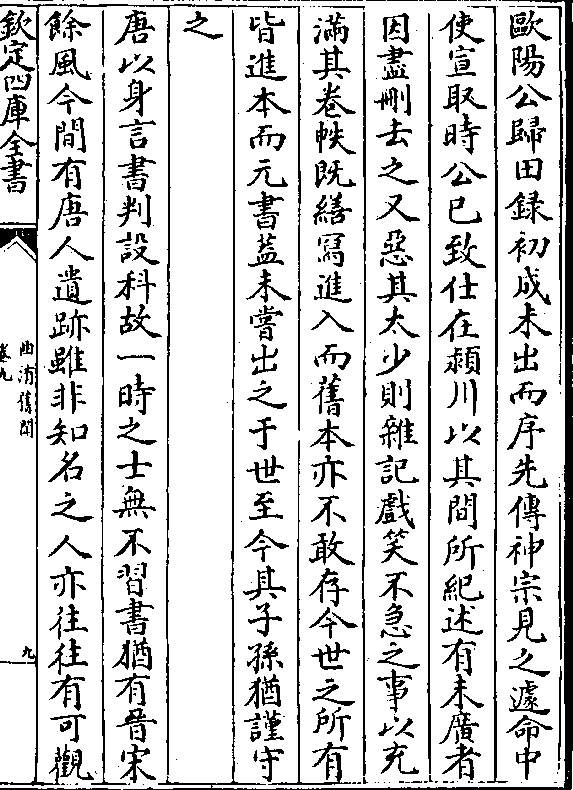 歐陽公歸田録初成未出而序先傳神宗見之遽命中
使宣取時公已致仕在潁川以其間所紀述有未廣者
因盡刪去之又惡其太少則雜記戲笑不急之事以充
滿其卷帙既繕寫進入而舊本亦不敢存今世之所有
皆進本而元書蓋未嘗出之于世至今其子孫猶謹守
之
唐以身言書判設科故一時之士無不習書猶有晉宋
餘風今間有唐人遺跡雖非知名之人亦往往有可觀
欽定四庫全書
曲洧舊聞
卷九
九